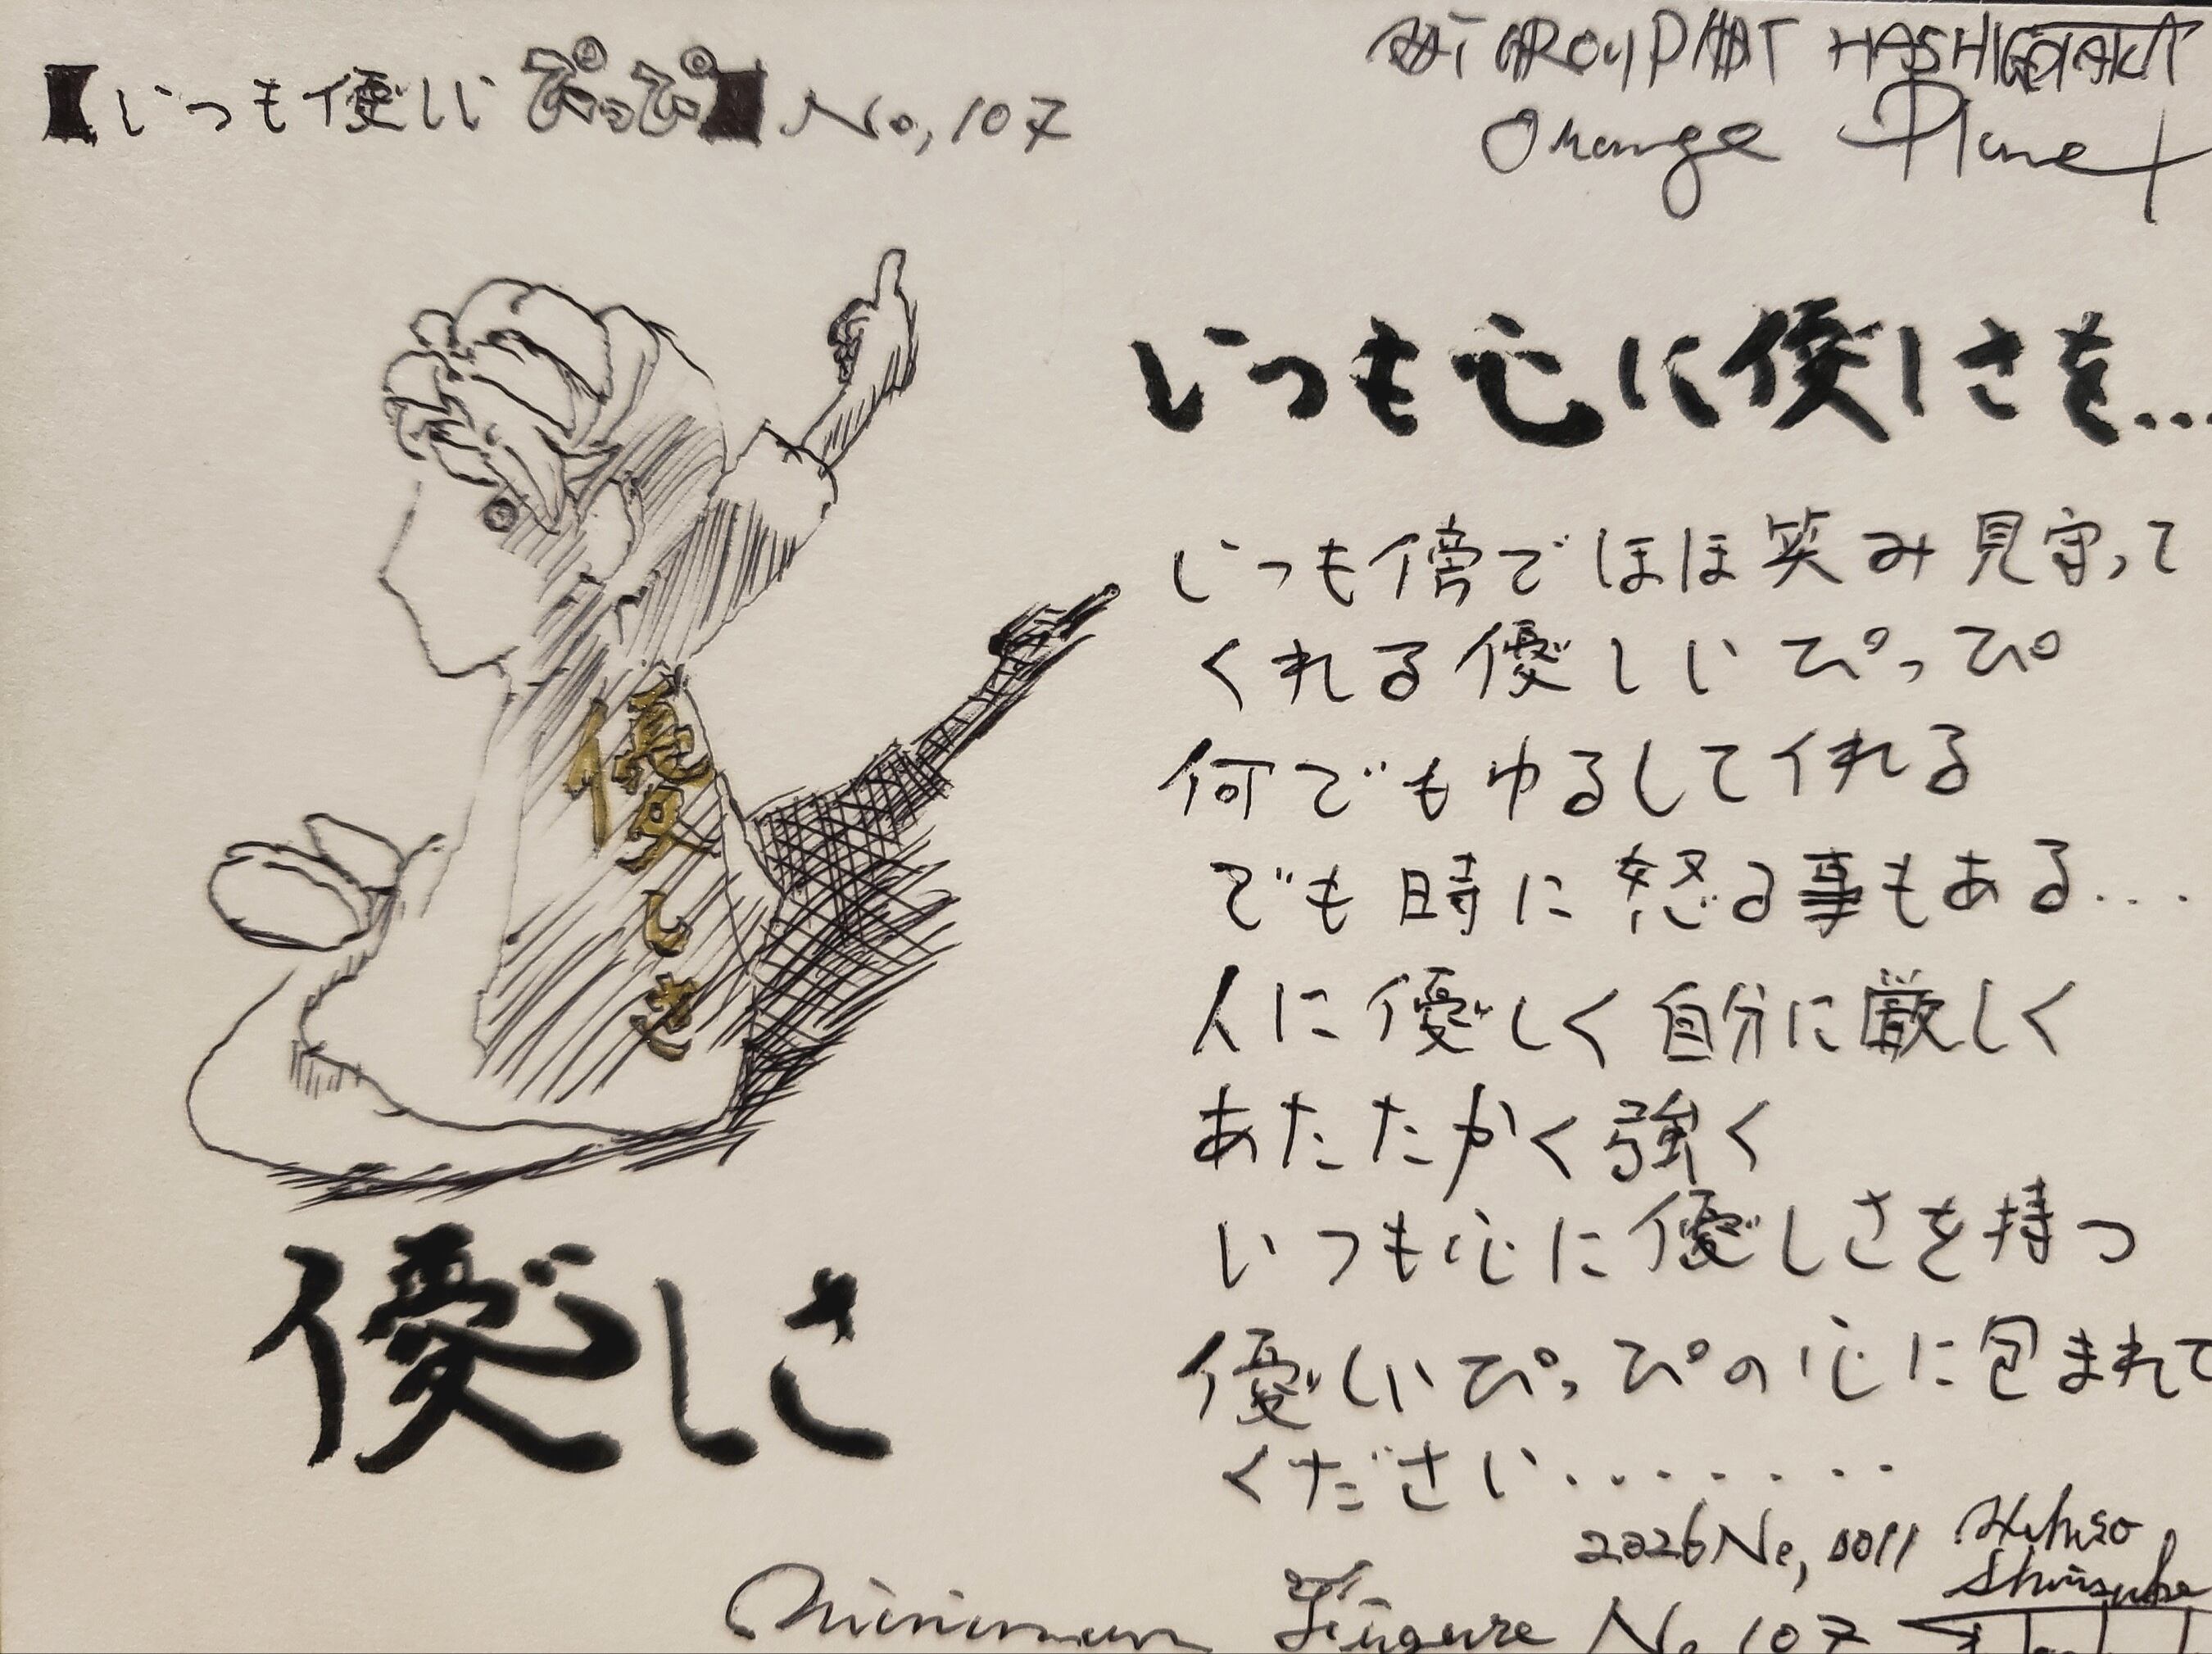 【いつも優しいぴっぴ】No,107
HASHIGOTAKA
Orange Planet
いつも心に優しさを...
いつも傍でほほ笑み見守って
くれる優しいぴっぴ
何でもゆるしてくれる
でも時に怒る事もある...
人に優しく自分に厳しく
あたたかく強く
いつも心に優しさを持つ
優しいぴっぴの心に包まれて
ください........
優しさ
優しさ
2026No,0011
Shinsuke
Minimum Figure No 107